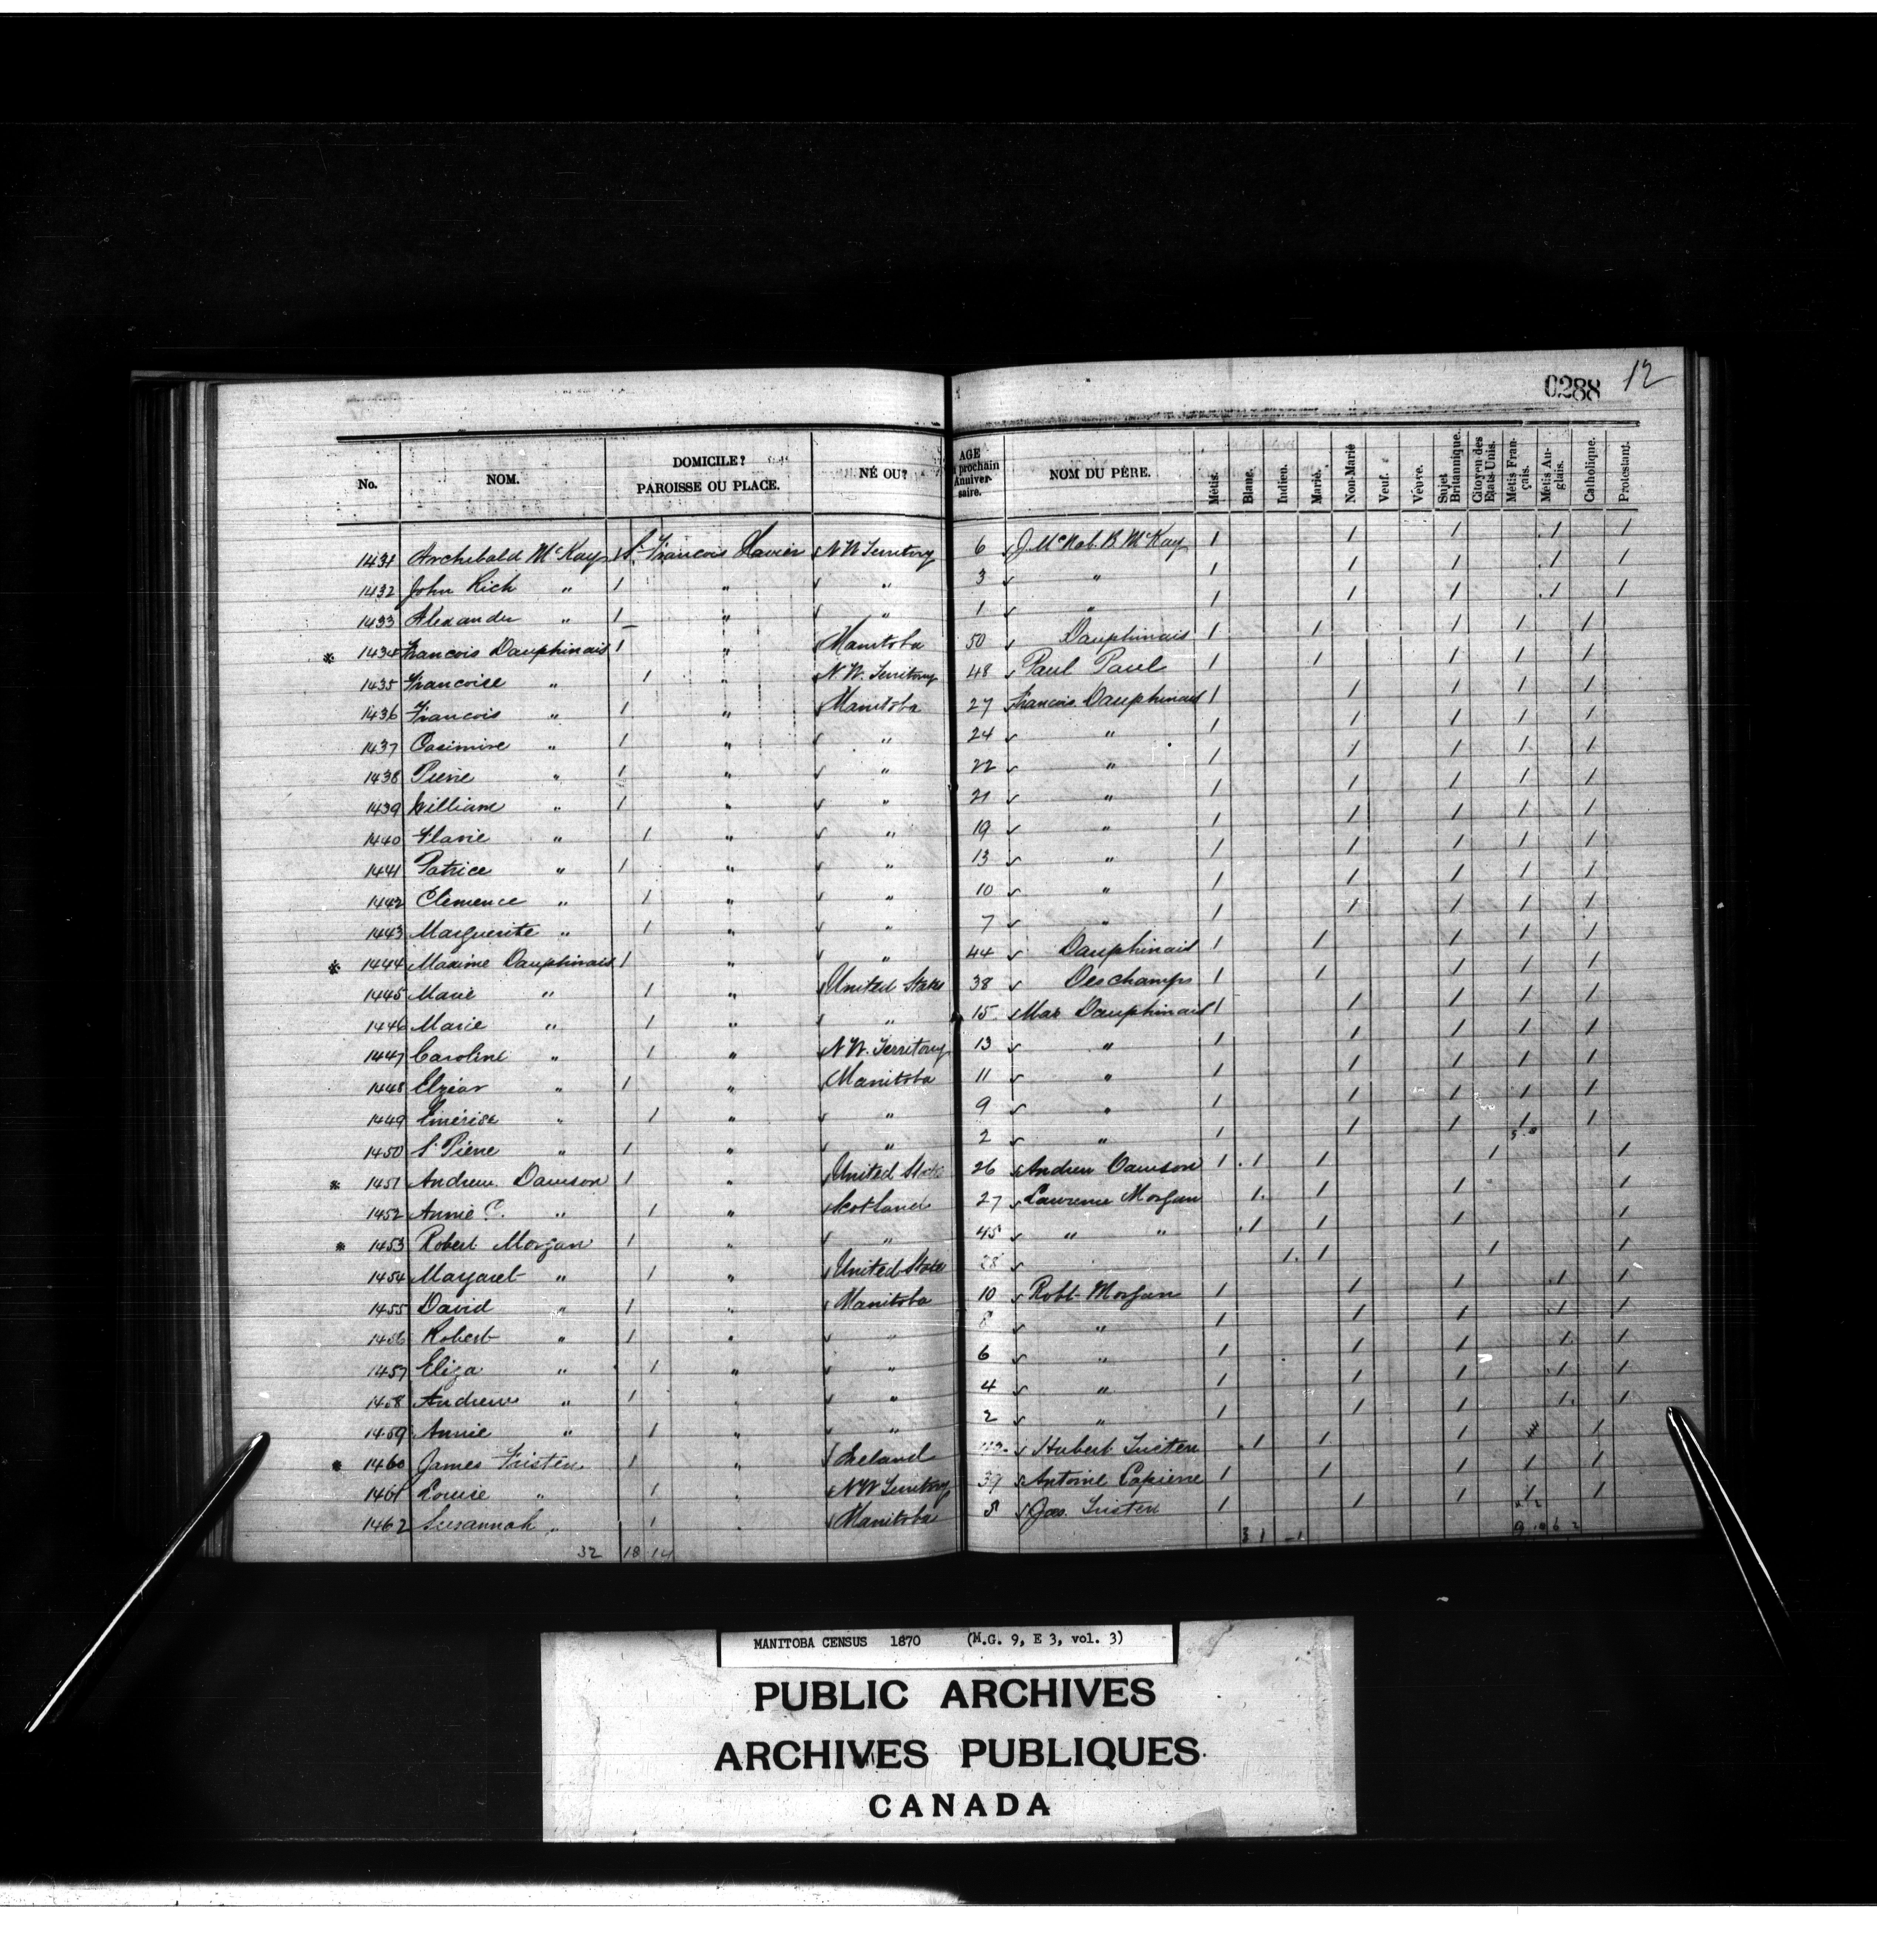 0288 12
No. NOM. DOMICILE? PAROISSE OU PLACE. NÉ OU? AGE prochain Anniver-saire. NOM DU PÈRE. Métis. Blanc. Indien. Marié. Non-Marié Veuf. Veuve. Sujet Britannique. Citoyen des Etats-Unis. Métis Fran-çais. Métis An-glais. Catholique. Protestant.
1431 Archibald McKay 1 St. Francois Xavier N W Territory 6 J. McNab. B. McKay 1 1 1 1 1
1432 John Rich " 1 " " 3 " 1 1 1 1 1
1433 Alexander " 1 " " 1 " 1 1 1 1 1
* 1434 Francois Dauphinais 1 " Manitoba 50 Dauphinais 1 1 1 1 1
1435 Francoise " 1 " N. W. Territory 48 Paul Paul 1 1 1 1 1
1436 Francois " 1 " Manitoba 27 Francois Dauphinais 1 1 1 1 1
1437 Casimire " 1 " " 24 " 1 1 1 1 1
1438 Pierre " 1 " " 22 " 1 1 1 1 1
1439 William " 1 " " 21 " 1 1 1 1 1
1440 Flavie " 1 " " 19 " 1 1 1 1 1
1441 Patrice " 1 " " 13 " 1 1 1 1 1
1442 Clemence " 1 " " 10 " 1 1 1 1 1
1443 Marguerite " 1 " " 7 " 1 1 1 1 1
* 1444 Maxime Dauphinais 1 " " 44 Dauphinais 1 1 1 1 1
1445 Marie " 1 " United States 38 Deschamps 1 1 1 1 1
1446 Marie " 1 " " 15 Max Dauphinais 1 1 1 1 1
1447 Caroline " 1 " N W. Territory 13 " 1 1 1 1 1
1448 Elzéar " 1 " Manitoba 11 " 1 1 1 1 1
1449 Emérise " 1 " " 9 " 1 1 1 1 1
1450 St. Pierre " 1 " " 2 " 1 1 1 1 1
* 1451 Andrew Dawson 1 " United States 26 Andrew Dawson 1 1 1 1 1
1452 Annie C. " 1 " Scotland 27 Lawrence Morgan 1 1 1 1
* 1453 Robert Morgan 1 " " 45 " " 1 1 1 1
1454 Margaret " 1 " United States 28 1 1 1 1
1455 David " 1 " Manitoba 10 Robt Morgan 1 1 1 1 1
1456 Robert " 1 " " 8 " 1 1 1 1 1
1457 Eliza " 1 " " 6 " 1 1 1 1 1
1458 Andrew " 1 " " 4 " 1 1 1 1 1
1459 Annie " 1 " " 2 " 1 1 1 1 1
* 1460 James Tristen 1 " Ireland Hubert Tristen 1 1 1 1
1461 Louise " 1 " N W Territory 39 Antoine Lapierre 1 1 1 1 1
1462 Susannah " 1 " Manitoba 5 Jas. Tristen 1 1 1 1 1
32 18 14
MANITOBA CENSUS 1870 (M.G. 9, E 3, vol. 3)
PUBLIC ARCHIVES
ARCHIVES PUBLIQUES
CANADA